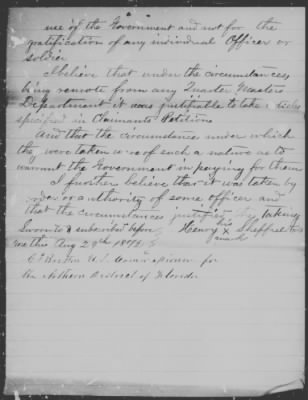 use of the Government and not for the
gratification of any individual Officer or
soldier
I believe that under the circumstances,
being remote from any Quarter Masters
Department it was justifiable to take
specified in Claimants Petition
And that the circumstances under which
they were taken were of such a nature as to
warrant the Government in paying for them
I further believe that it was taken by
order or authority of some officer and
that the circumstances justified taking
Sworn to & subscribed before Henry his x Sheffield
me this Aug 29th mark
U.S. Commissioner for
the Northern District of Florida